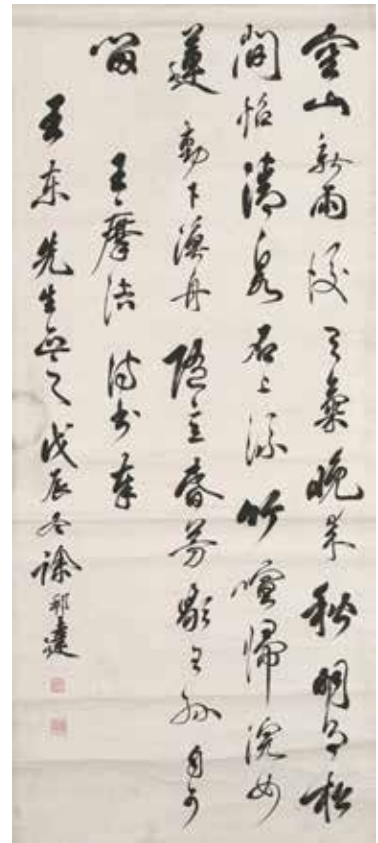 空山新雨後天氣晚來秋明月松
間照清泉石上流竹喧歸浣女
蓮動下漁舟隨意春芳歇王孫自可
留 王摩詰詩書奉
東先生 之戊辰冬徐邦達